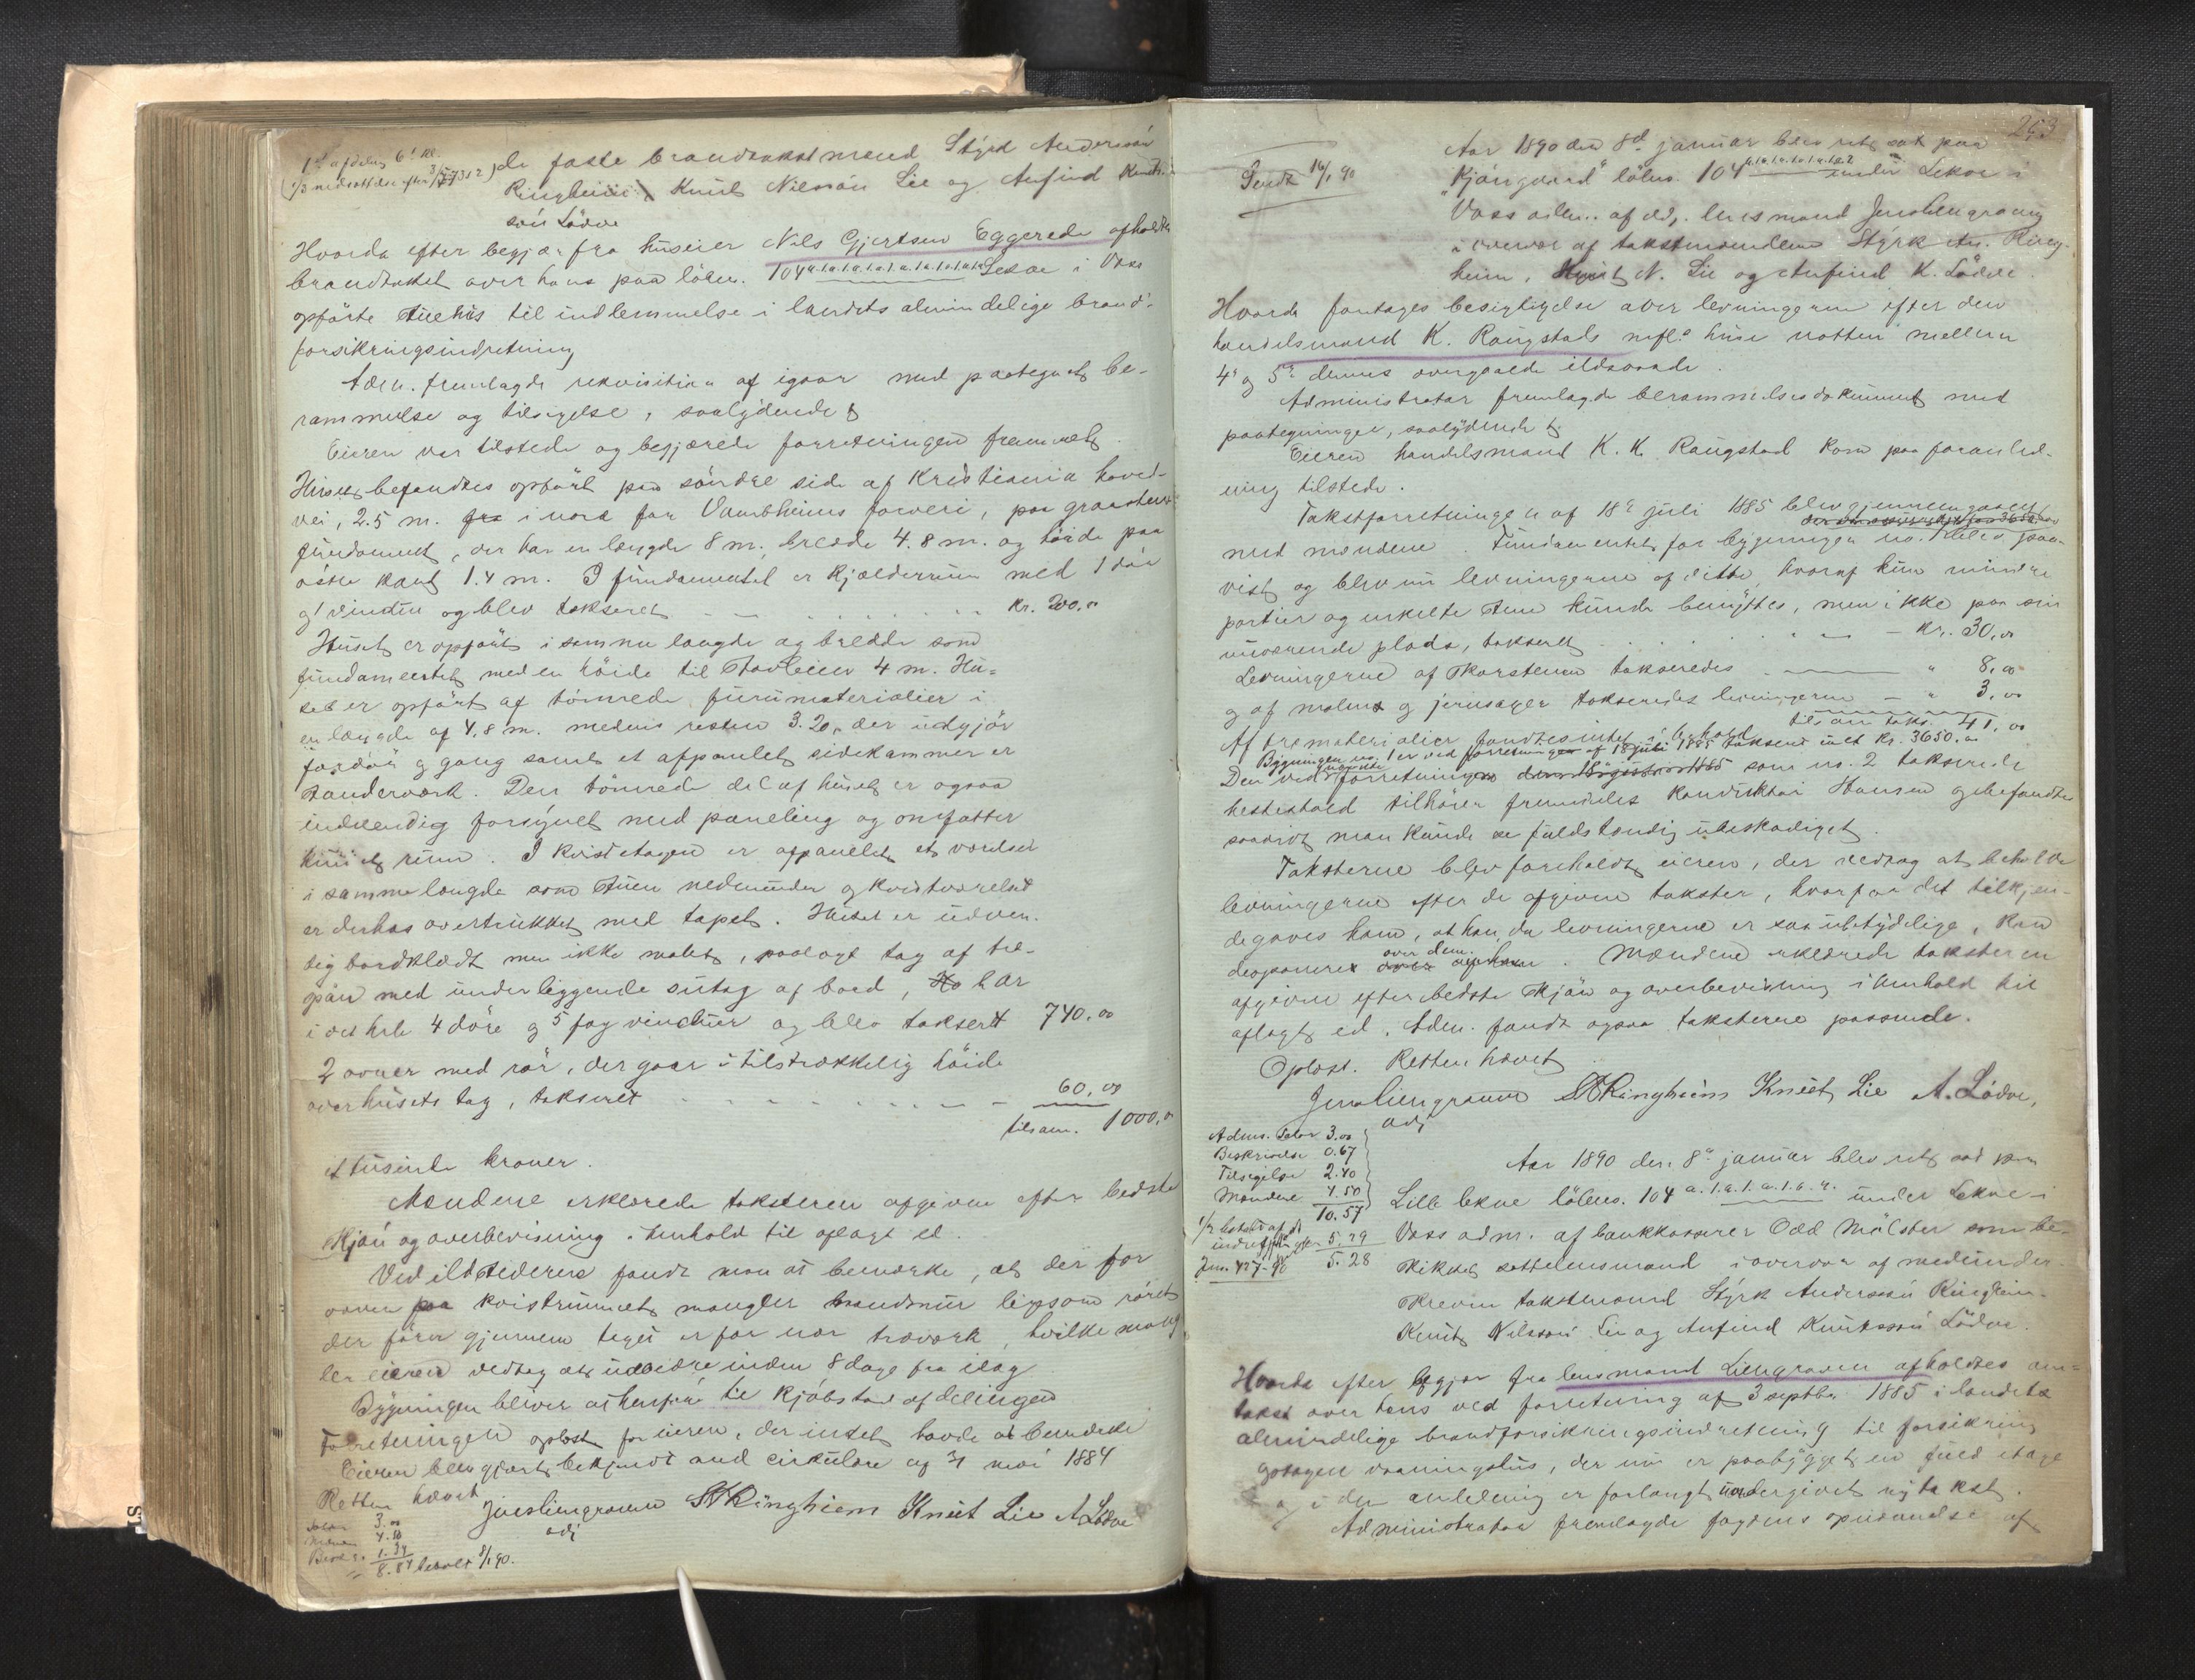 1ste afdeling 6te kl.
de faste brandtakstmænd Styrk Andersson
Ringheim, Knut Nilsson Lie og Anfind Knuts-
son Lødve
Hvorda efter begjær fra huseier Nils Gjertsen Eggerede afholdtes
brandtakst over hans paa løben. 104 a.1.a.1.a.1.a.1.a.1.a.1.a Lekve i Voss
opførte stuehus til indlemmelse i landets almindelige brand-
forsikringsindretning
Adm. fremlagde rekvisition af igaar med paategnet be-
rammelse og tilsigelse, saalydende
Eieren var tilstede og begjærede forretningen fremmet.
Huset befandtes opført paa søndre side af Kristiania hoved-
vei, 2.5 m. fra i nord for farveri, paa graastens
fundament, der har en længde 8 m., bredde 4.8 m. og høide paa
østre kant 1.4 m. I fundamentet er kjælderrum med 1 dør
og 1 vindu og blev takseret kr. 200.00
Huset er opført i samme længde og bredde som
fundamentet med en høide til stavleier 4 m. Hu-
set er opført af tømrede furumaterialier i
en længde af 4,8 m. medens resten 3.20, der udgjør
fordør og gang samt et afpanelet sidekammer er
standerværk. Den tømrede del af huset er ogsaa
indvendig forsynet med paneling og omfatter
kun et rum. I kvistetagen er afpanelet et værelse
i samme længde som stuen nedenunder og kvistværelset
er derhos overtrukket med tapet. Huset er udven-
dig bordklædt men ikke malet, paalagt tag af tre-
spaan med underliggende sutag af bord, har
i det hele 4 døre og 5 fag vinduer og blev takseret 740.00
2 ovner med rør, der gaar i tilstrækkelig høide
over husets tag, takseret 60,00
tilsam. 1000,00
et tusinde kroner.
Mændene erklærede taksterne afgivne efter bedste
skjøn og overbevisning i henhold til aflagt ed.
Ved ildstederne fandt man at bemærke, at der for
ovnen paa kvistrummet mangler brandmur ligesom røret
der fører gjennem taget er for nær træværk, hvilke mang-
ler eieren vedtog at udbedre inden 8 dage fra idag
Bygningen bliver at henføre til kjøbstad afdelingen
Forretningen oplæst for eieren, der intet havde at bemærke
Eieren blev gjort bekjendt med cirkulære af 31 mai 1884
Retten hævet
Jens Liengraven SA Ringheim Knut Lie A Lødve
adj
3.00
4.50
1.34
8.84 betalt 8/1 90.
263
Sendt 14/1 90
Aar 1890 den 8de januar blev ret sat paa
"Kjørgaard" løben. 104 under Lekve i
Voss adm. af adj. lensmand Jens Liengraven
i overvær af takstmændene Styrk An. Ring-
heim, Knut N. Lie og Anfind K. Lødve.
Hvorda foretages besigtigelse over levningerne efter den
handelsmand K. Raugstads nedbr. huse natten mellem
4de og 5te dennes overgaaede ildsvaade.
Administrator fremlagde berammelsesdokument med
paategninger, saalydende
Eieren handelsmand K. K. Raugstad kom paa foranled-
ning tilstede.
Takstforretningen af 18de juli 1885 blev gjennemgaaet
med mændene. Fundamentet for bygningen no. 1 blev paa-
vist og blev nu levningerne af dette, hvoraf kun mindre
partier og enkelte stene kunde benyttes, men ikke paa sin
nuværende plads, takseret kr. 30,00
Levningerne af skorstenen takseredes " 8,00
og af malm og jernsager takseredes levningerne " 3,00
tilsam taks. 41,00
Af træmaterialier fandtes intet i behold
Bygningen no. 1 er ved forretningen af 18 juli 1885 takseret til kr. 3650.00
Den ved forretningen som no. 2 takserede
hestestald tilhører fremdeles konduktør Hansen og befandtes
saavidt man kunde se fuldstændig ubeskadiget.
Taksterne blev foreholdt eieren, der vedtog at beholde
levningerne efter de afgivne takster, hvorpaa det tilkjen-
degaves ham, at han, da levningerne er saa ubetydelige, kan
disponere over dem. Mændene erklærede taksterne
afgivne efter bedste skjøn og overbevisning i henhold til
aflagt ed. Adm. fandt ogsaa taksterne passende.
Oplæst. Retten hævet
Jens Liengraven SA Ringheim Knut Lie A. Lødve,
adj
Adms. Salær 3.00
Beskrivelse 0.67
Tilsigelse 2.40
Mændene 4.50
10.57
1/2 betalt af
5.29
5.28
Aar 1890 den 8de januar blev ret sat paa
Lille Lekve løben. 104 a.1.a.1.a.1.a.a. under Lekve i
Voss adm. af bankkasserer Odd Mølster som be-
skikket sættelensmand i overvær af medunder-
skrevne takstmænd Styrk Andersson Ringheim
Knut Nilsson Lie og Anfind Knutsson Lødve.
Hvorda efter begjær fra lensmand Liengraven afholdtes om-
takst over hans ved forretning af 3 septbr 1885 i landets
almindelige brandforsikringsindretning til forsikring
gotagne vaaningshus, der nu er paabygget en fuld etage
og i den anledning er forlangt undergivet ny takst.
Administrator fremlagde fogdens opnævnelse af